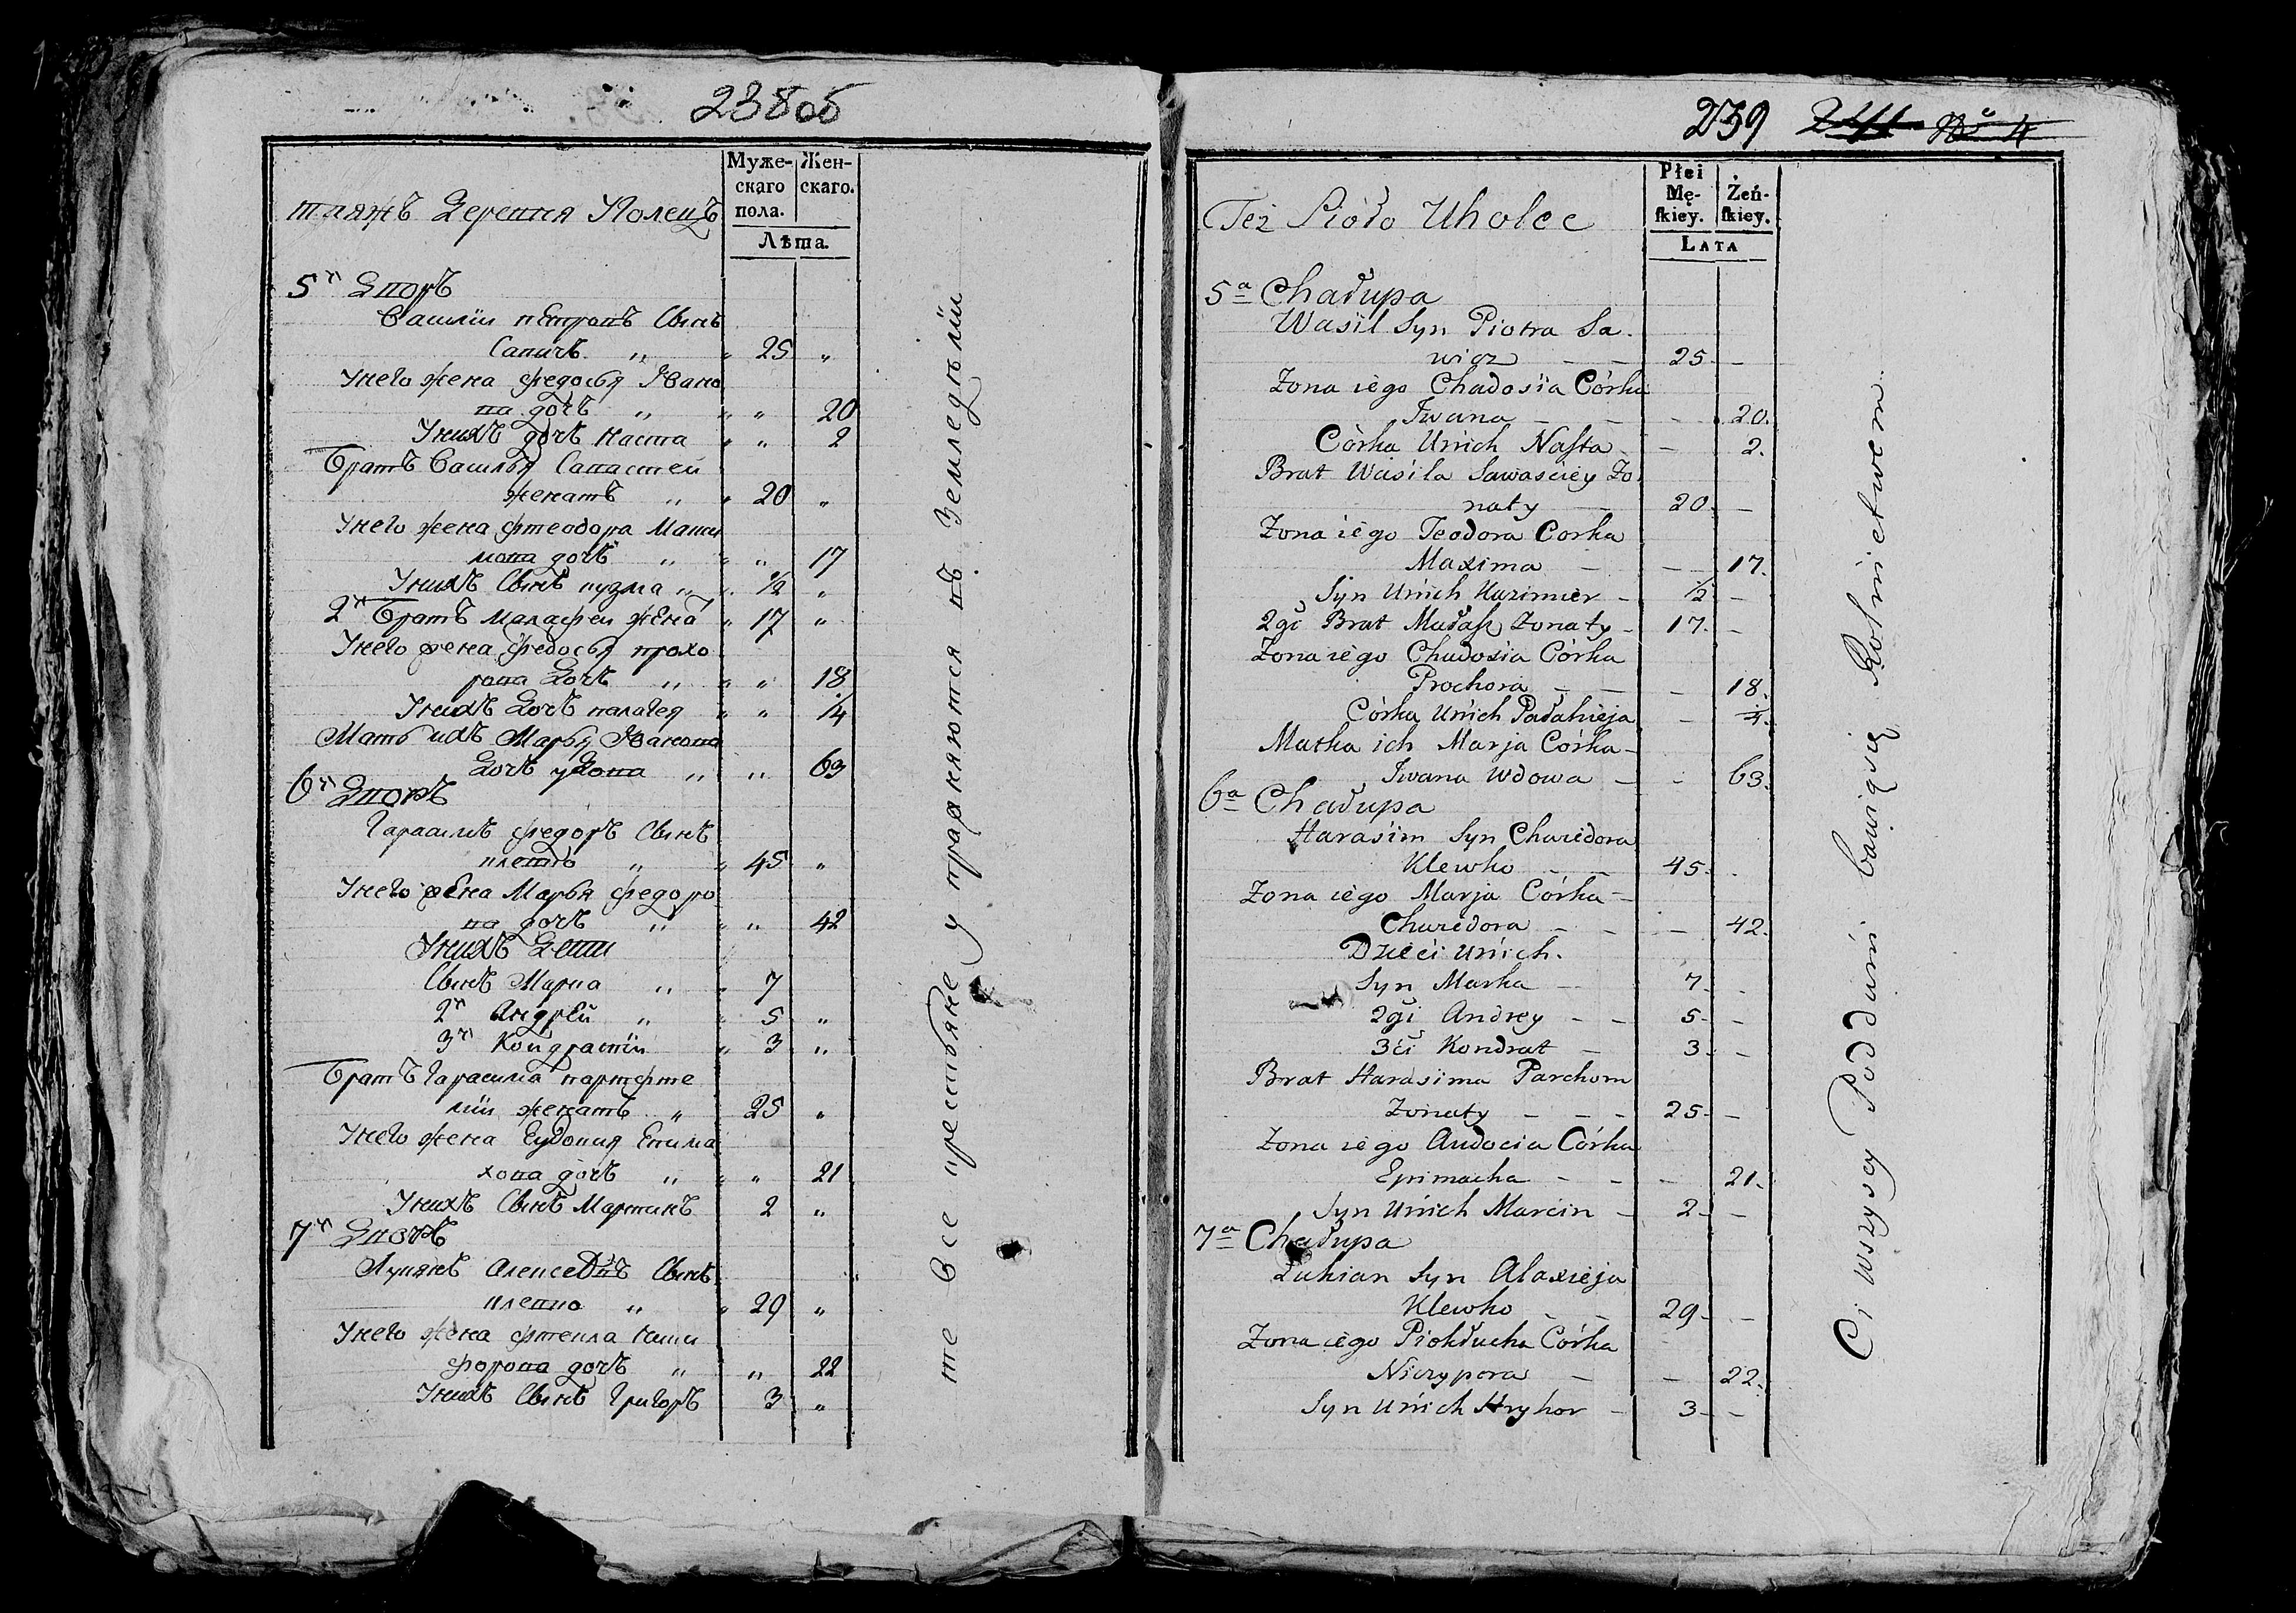 238об
Муже- Жен-
скаго скаго.
пола.
Лѣта.
таяжъ Деревня Уголецъ
5й Дворъ
Василiи петровъ Сынъ
Савичъ „ „ 25 „
Унего жена федосья Ивано
ва дочь „ „ „ 20
Унихъ дочь Наста „ „ 2
Братъ Василья Савастеи
женатъ „ „ 20 „
Унего жена фтеодора Макси
мова дочь „ „ „ 17
Унихъ Сынъ кузма „ „ ½ „
2й Братъ Малафеи жена „ 17 „
Унего жена федосья прохо
рова Дочь „ „ „ 18
Унихъ Дочь палагея „ „ ¼
Мать ихъ Марья Иванова
Дочь удова „ „ 63
6й Дворъ
Гарасимъ федоръ Сынъ
клевко „ „ 45 „
Унего жена Марья федоро
ва дочь „ „ „ 42
Унихъ Дети
Сынъ Марка „ „ 7
2й Андрей „ „ 5 „
3й Кондратiи „ 3 „
Братъ Гарасима партфте
лiи женатъ „ 25 „
Унего жена Еудокия Епима
хова дочь „ „ „ 21
Унихъ Сынъ Мартинъ 2 „
7й Дворъ
Лукянъ Алексеевъ Сынъ
клевко „ „ 29 „
Унего жена фтекла Ничи
форова дочь „ „ 22
Унихъ Сынъ Григоръ 3 „
те Все престьяне упражняются въ Земледѣлiи
239 241 № 4
Płci Żeń-
Mę- ſkiey.
ſkiey.
LATA
Też Sioło Uholec
5a Chałupa
Wasil Syn Piotra Sa-
wicz — — 25 —
Zona iego Chadosia Córka
Iwana — — — 20.
Córka Unich Naſta — — 2.
Brat Wasila Sawaściey Zo
naty — 20 —
Zona iego Teodora Corka
Maxima — — 17.
Syn Unich Kazimier — ½ —
2gi Brat Małaſz Zonaty — 17. —
Zona iego Chadosia Córka
Prochora — — — 18.
Córka Unich Pałahieja — ¼.
Matka ich Marja Córka —
Iwana Wdowa — — 63.
6a Chałupa
Harasim Syn Chwiedora
Klewko — — 45 .
Zona iego Marja Córka —
Chwiedora — — — 42.
Dzieci Unich.
Syn Marka — 7 —
2gi Andrey — — 5 —
3ci Kondrat — 3 —
Brat Harasima Parchom
Zonaty — — — 25 —
Zona iego Audocia Córka
Epimacha — — — 21.
Syn Unich Marcin — 2 —
7a Chałupa
Łukian Syn Alaxieja
Klewko — — 29 —
Zona iego Piokłucha Córka
Niczypora — — 22.
Syn Unich Hryhor — 3 —
Ci wszyscy Poddani bawią się Rolnictwem.